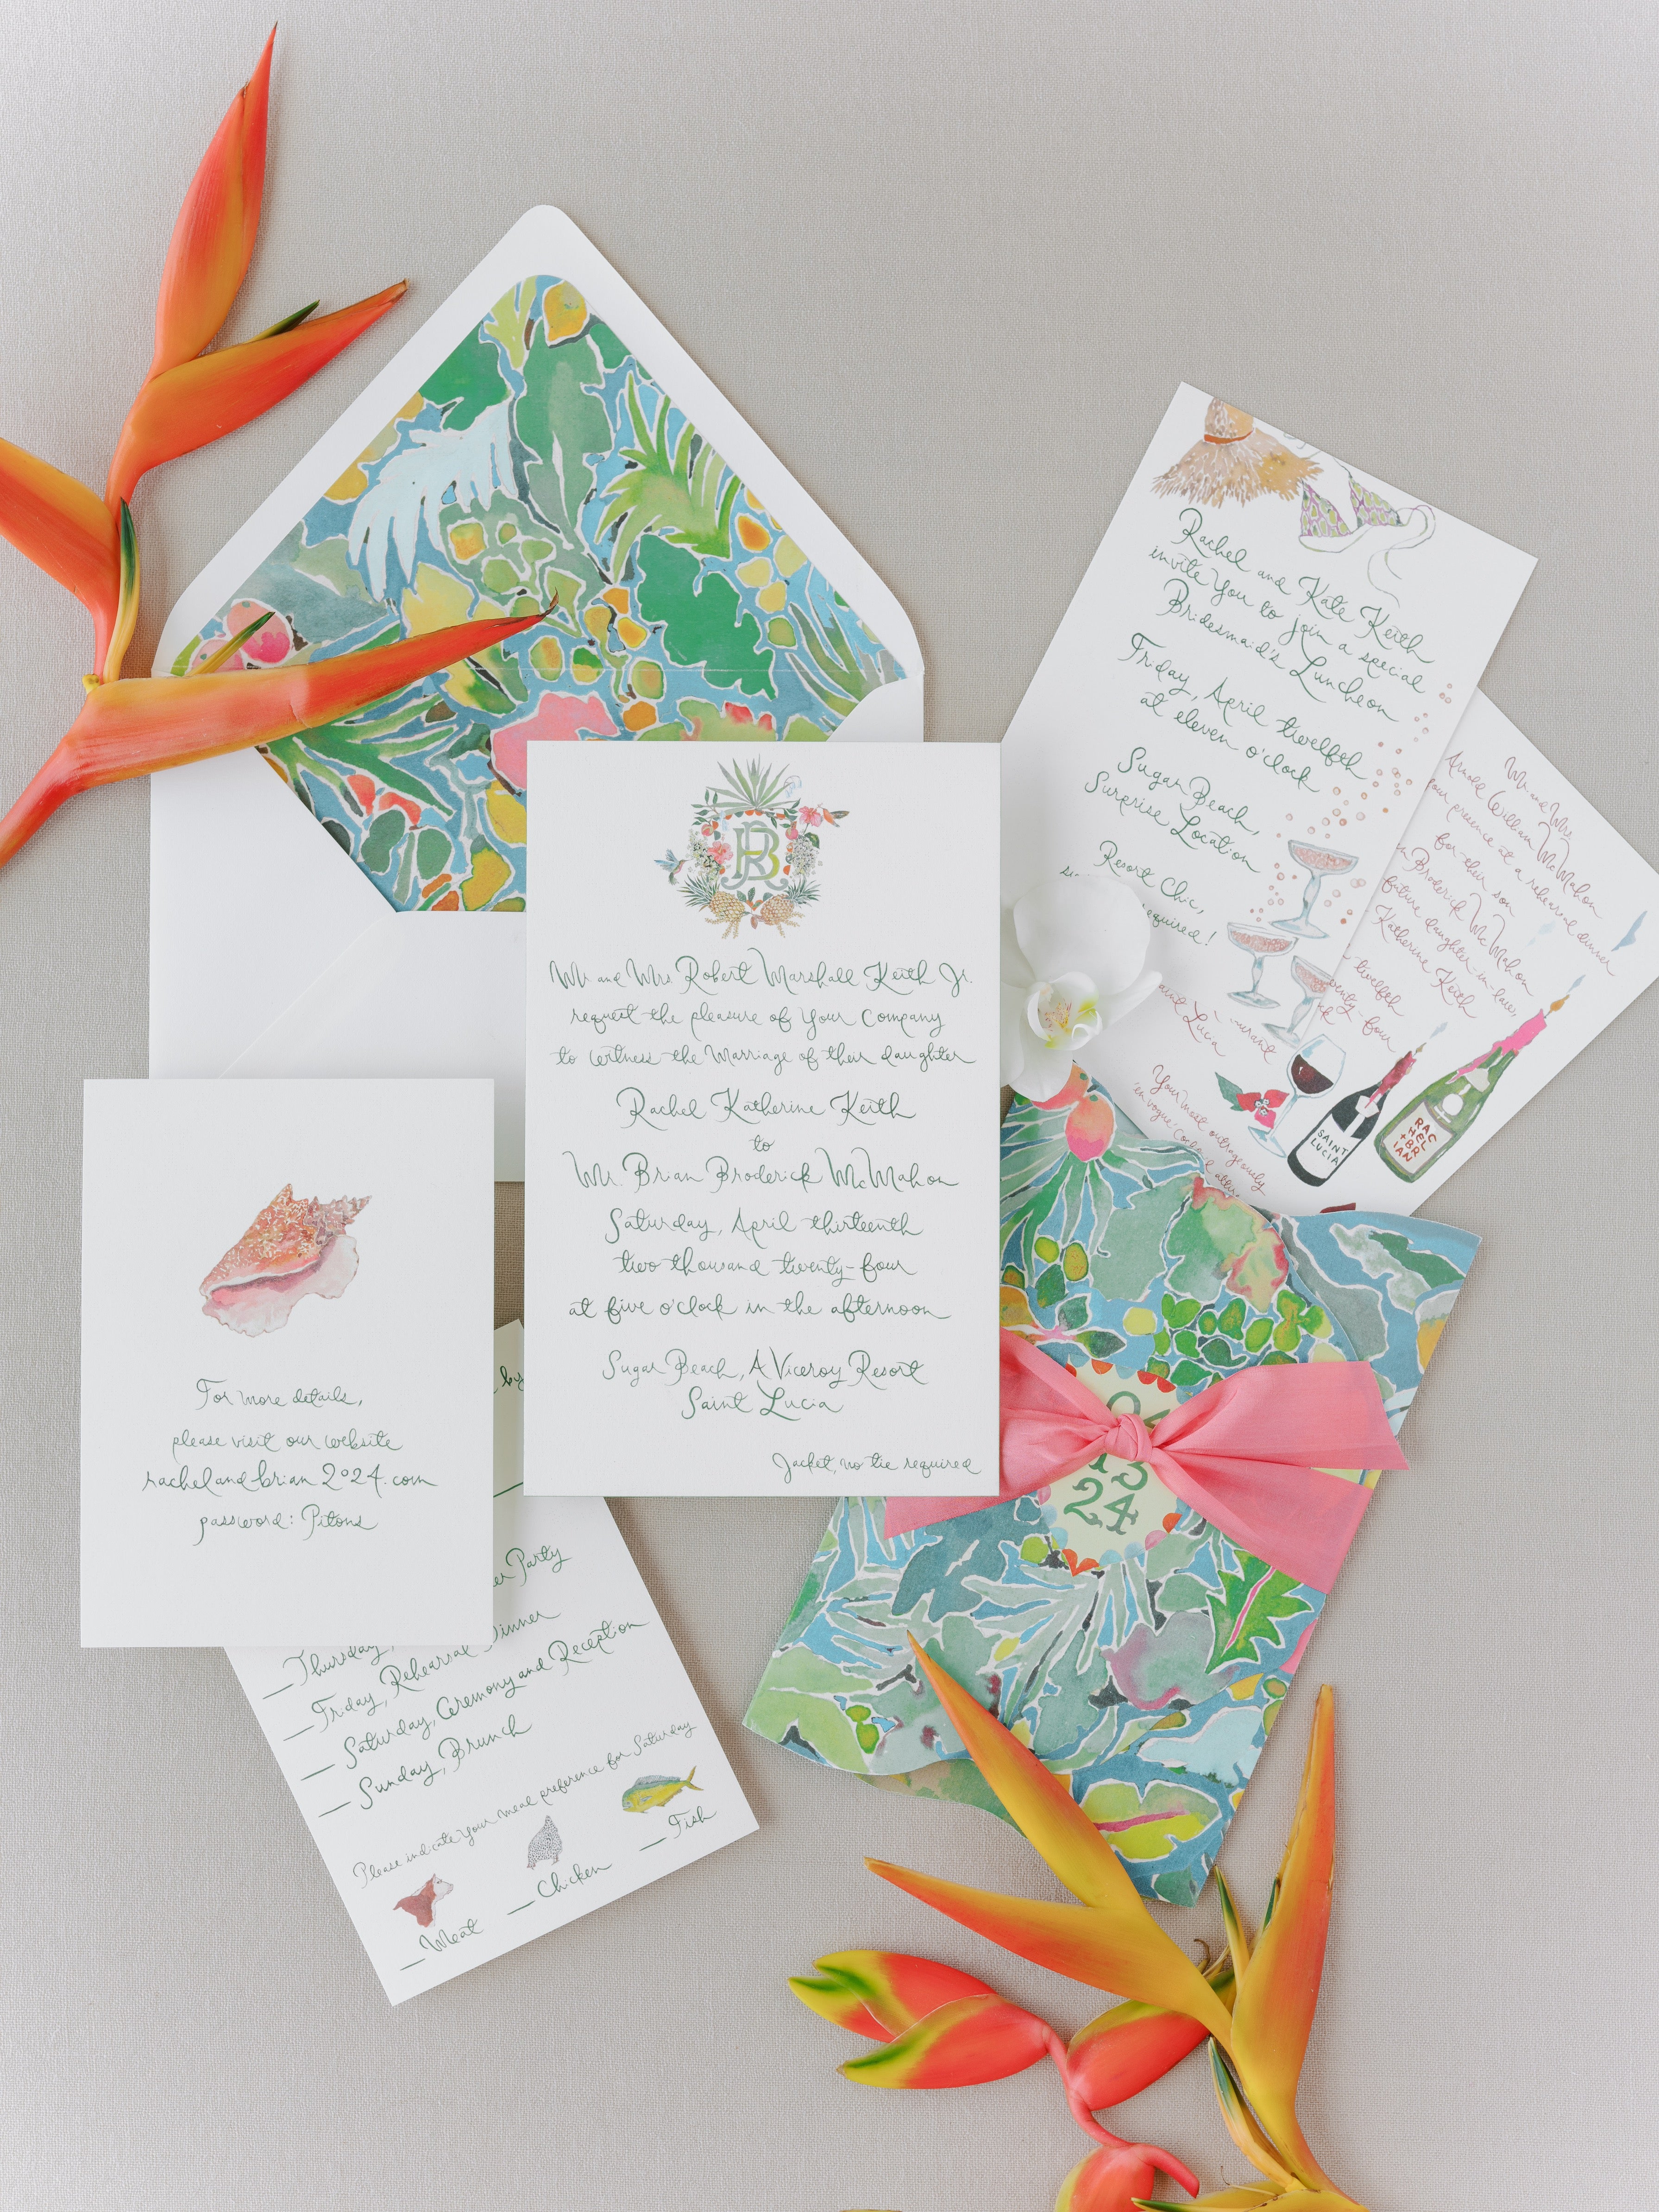 Rachel and Kate Keith
invite You to join a special
Bridesmaid's Luncheon
Friday, April twelfth
at eleven o'clock
Sugar Beach,
Surprise Location
Resort Chic,
required!
Mr. and Mrs.
Arnold William McMahon
your presence at a rehearsal dinner
for their son
Broderick McMahon
future daughter-in-law,
Katherine Keith
twelfth
twenty-four
Saint Lucia
Your most outrageously
'en vogue'
SAINT
LUCIA
RAC
HEL
+BR
IAN
Mr. and Mrs. Robert Marshall Keith Jr.
request the pleasure of Your Company
to witness the Marriage of their daughter
Rachel Katherine Keith
to
Mr. Brian Broderick McMahon
Saturday, April thirteenth
two thousand twenty-four
at five o'clock in the afternoon
Sugar Beach, A Viceroy Resort
Saint Lucia
Jacket, no tie required
For more details,
please visit our website
rachelandbrian2024.com
password: Pitons
by
Party
Thursday,
Friday, Rehearsal Dinner
Saturday, Ceremony and Reception
Sunday, Brunch
Please indicate Your meal preference for Saturday
Meat
Chicken
Fish
24